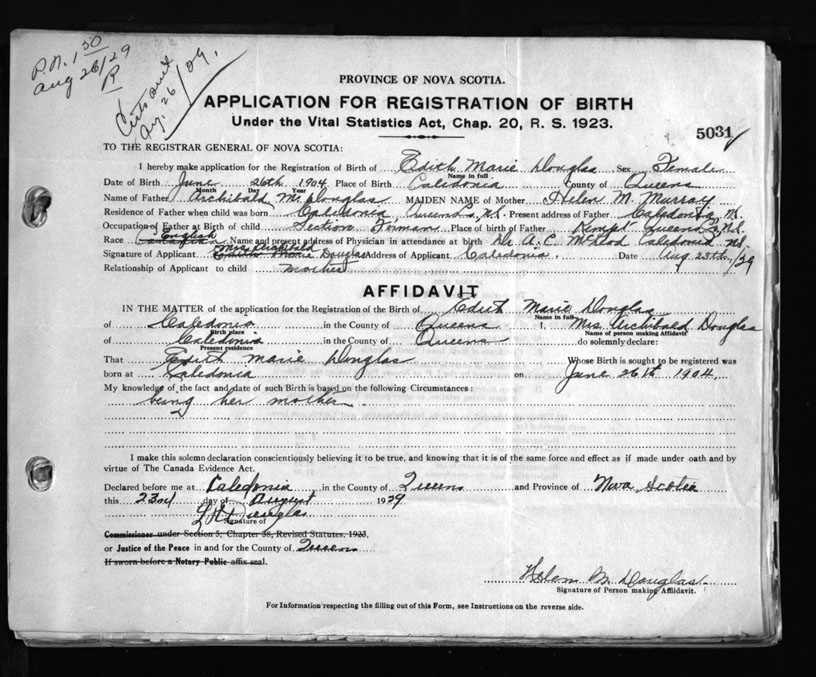 P.N. 1 50
Aug 26/29
R
Certs out
Aug. 26/29.
PROVINCE OF NOVA SCOTIA.
APPLICATION FOR REGISTRATION OF BIRTH
Under the Vital Statistics Act, Chap. 20, R. S. 1923.
5031
TO THE REGISTRAR GENERAL OF NOVA SCOTIA:
I hereby make application for the Registration of Birth of Edith Marie Douglas Sex Female
Name in full
Date of Birth June 26th 1904 Place of Birth Caledonia County of Queens
Month Day Year
Name of Father Archibald Douglas MAIDEN NAME of Mother Helen M. Murray
Residence of Father when child was born Caledonia, Queens Co, N.S. Present address of Father Caledonia, N.S.
Occupation of Father at Birth of child Section Forman Place of birth of Father Kempt Queens Co N.S.
Race English Name and present address of Physician in attendance at birth Dr A. C. McLeod Caledonia N.S.
Signature of Applicant Mrs Archibald Douglas Address of Applicant Caledonia Date Aug 23rd/29
Relationship of Applicant to child mother
AFFIDAVIT
IN THE MATTER of the application for the Registration of the Birth of Edith Marie Douglas
Name in full
of Caledonia in the County of Queens I, Mrs. Archibald Douglas
Birth place Name of person making Affidavit
of Caledonia in the County of Queens do solemnly declare:
Present residence
That Edith Marie Douglas Whose Birth is sought to be registered was
born at Caledonia on June 26th 1904.
My knowledge of the fact and date of such Birth is based on the following Circumstances:
being her mother.
I make this solemn declaration conscientiously believing it to be true, and knowing that it is of the same force and effect as if made under oath and by
virtue of The Canada Evidence Act.
Declared before me at Caledonia in the County of Queens and Province of Nova Scotia
this 23rd day of August 1929
Douglas
Signature of
Commissioner under Section 5, Chapter 38, Revised Statutes, 1923,
or Justice of the Peace in and for the County of Queens
If sworn before a Notary Public affix seal.
Helen M. Douglas
Signature of Person making Affidavit.
For Information respecting the filling out of this Form, see Instructions on the reverse side.